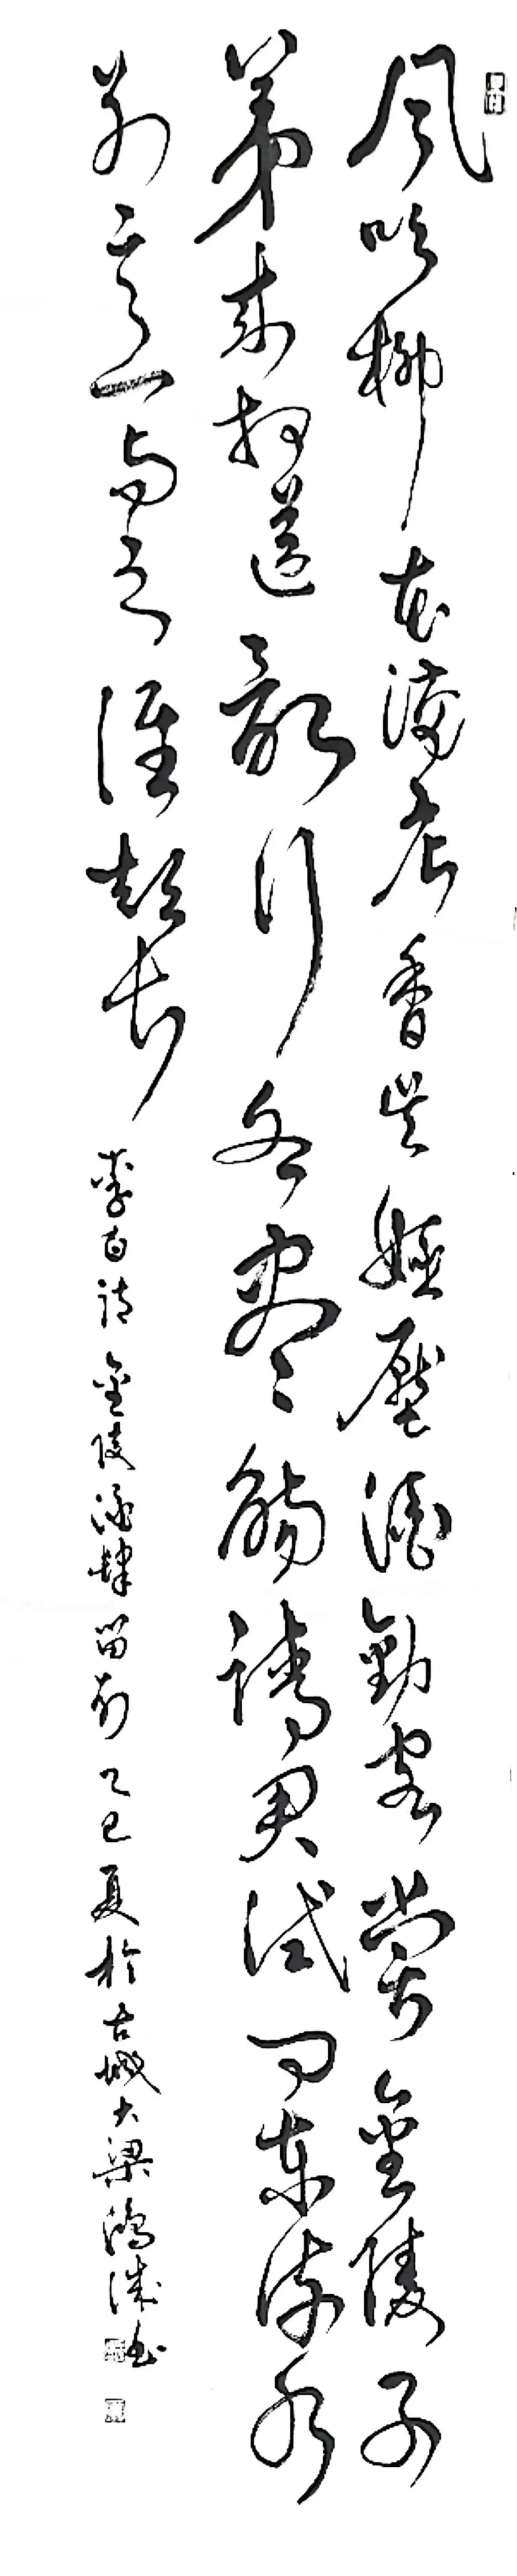 風吹柳花滿店香吳姬壓酒勸客嘗金陵子
弟來相送欲行各盡觴請君試問東流水
別意與之誰短長
李白詩金陵酒肆留別乙巳夏於古城大梁鴻書